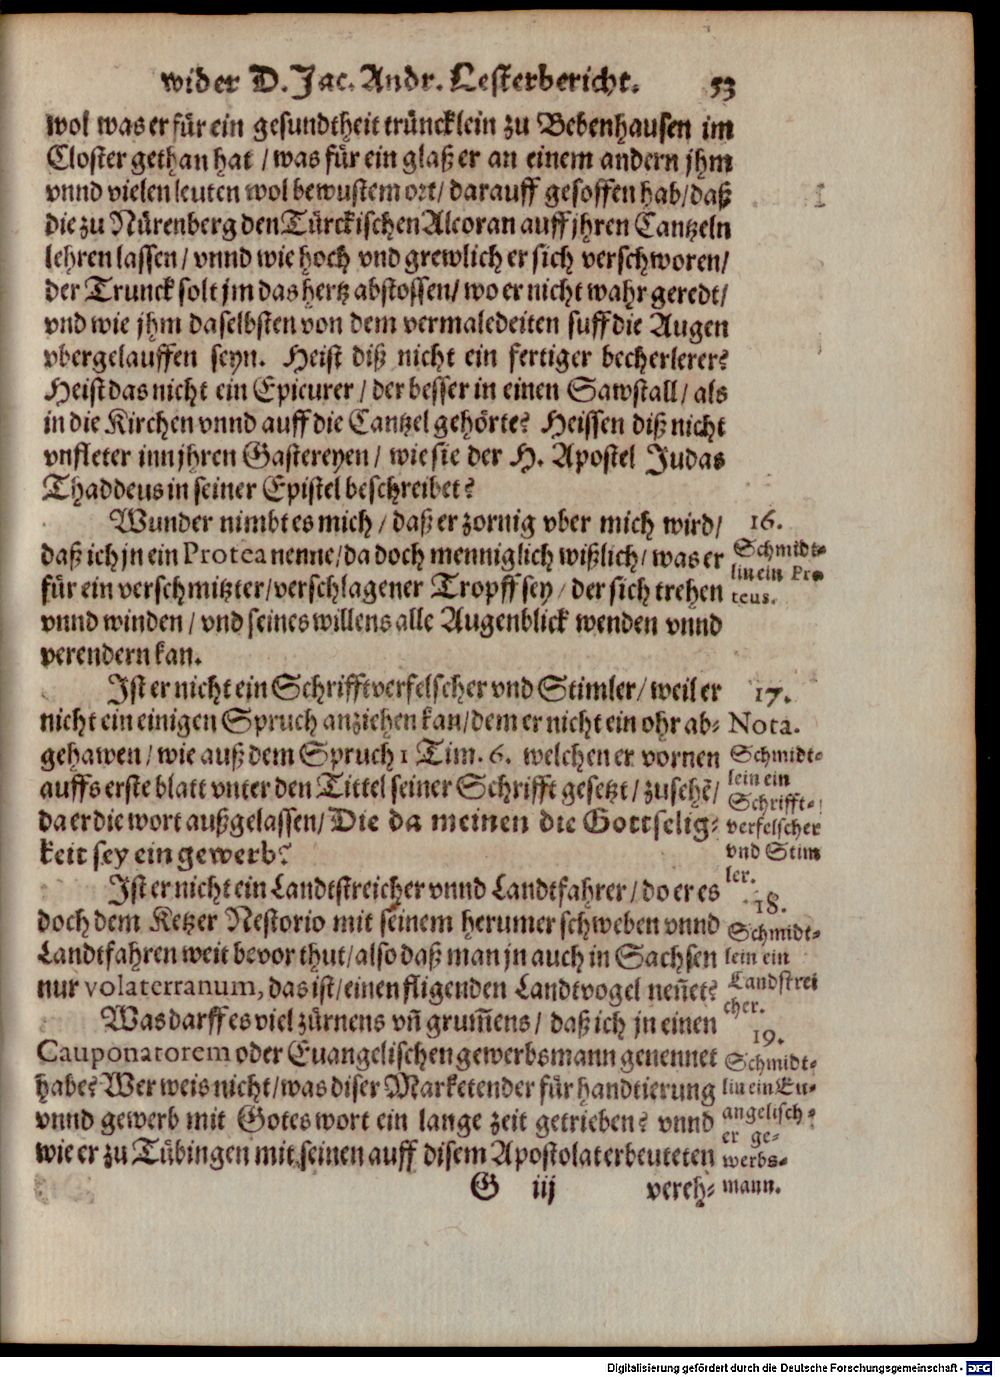 wider D. Jac. Andr. Lesterbericht. 53
wol was er für ein gesundtheit trüncklein zu Bebenhausen im
Closter gethan hat / was für ein glaß er an einem andern jhm
vnnd vielen leuten wol bewustem ort / darauff gesoffen hab / daß
die zu Nürenberg den Türckischen Alcoran auff jhren Cantzeln
lehren lassen / vnnd wie hoch vnd grewlich er sich verschworen /
der Trunck solt jm das hertz abstossen / wo er nicht wahr geredt /
vnd wie jhm daselbsten von dem vermaledeiten suff die Augen
vbergelauffen seyn. Heist diß nicht ein fertiger becherlerer?
Heist das nicht ein Epicurer / der besser in einen Sawstall / als
in die Kirchen vnnd auff die Cantzel gehörte? Heissen diß nicht
vnfleter inn jhren Gastereyen / wie sie der H. Apostel Judas
Thaddeus in seiner Epistel beschreibet?
Wunder nimbt es mich / daß er zornig vber mich wird /
daß ich jn ein Protea nenne / da doch menniglich wißlich / was er
für ein verschmitzter / verschlagener Tropff sey / der sich trehen
vnnd winden / vnd seines willens alle Augenblick wenden vnnd
verendern kan.
16.
Schmidt-
lin ein Pro
teus.
Ist er nicht ein Schrifftverfelscher vnd Stimler / weil er
nicht ein einigen Spruch anziehen kan / dem er nicht ein ohr ab-
gehawen / wie auß dem Spruch 1 Tim. 6. welchen er vornen
auffs erste blatt vnter den Tittel seiner Schrifft gesetzt / zusehẽ /
da er die wort außgelassen / Die da meinen die Gottselig-
keit sey ein gewerb?
17.
Nota.
Schmidt-
lein ein
Schrifft-
verfelscher
vnd Stim
ler.
Ist er nicht ein Landtstreicher vnnd Landtfahrer / do er es
doch dem Ketzer Nestorio mit seinem herumer schweben vnnd
Landtfahren weit bevor thut / also daß man jn auch in Sachsen
nur volaterranum, das ist / einen fligenden Landtvogel neñet?
18.
Schmidt-
lein ein
Landstrei
cher.
Was darff es viel zürnens vñ grum̃ens / daß ich jn einen
Cauponatorem oder Euangelischen gewerbsmann genennet
habe? Wer weis nicht / was diser Marketender für handtierung
vnnd gewerb mit Gotes wort ein lange zeit getrieben? vnnd
wie er zu Tübingen mit seinen auff disem Apostolat erbeuteten
19.
Schmidt-
lin ein Eu-
angelisch-
er ge-
werbs-
mann.
G iij vereh-
Digitalisierung gefördert durch die Deutsche Forschungsgemeinschaft - DFG